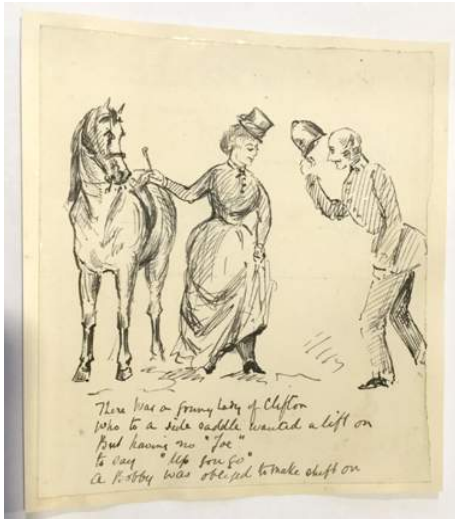 There was a young lady of Clifton
who to a side saddle wanted a lift on
But having no "Joe"
to say "Up you go"
a Bobby was obliged to make shift on